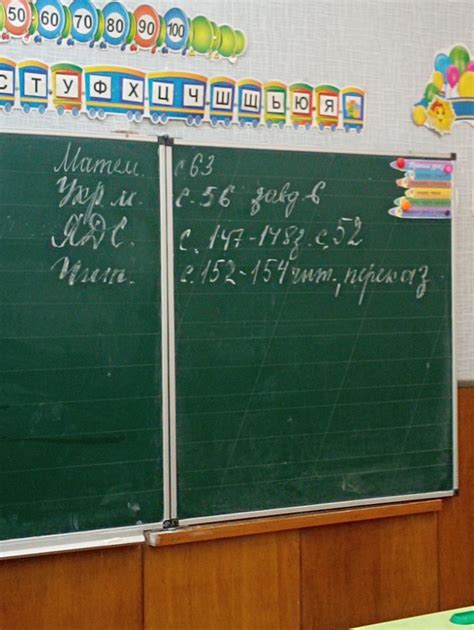 50 60 70 80 90 100
С Т У Ф Х Ц Ч Ш Щ Ь Ю Я
Матем. с 63
Укр. м. с. 56 завд. 6
ЯДС. с. 147-148 з. с. 52
Чит. с. 152-154 чит., переказ